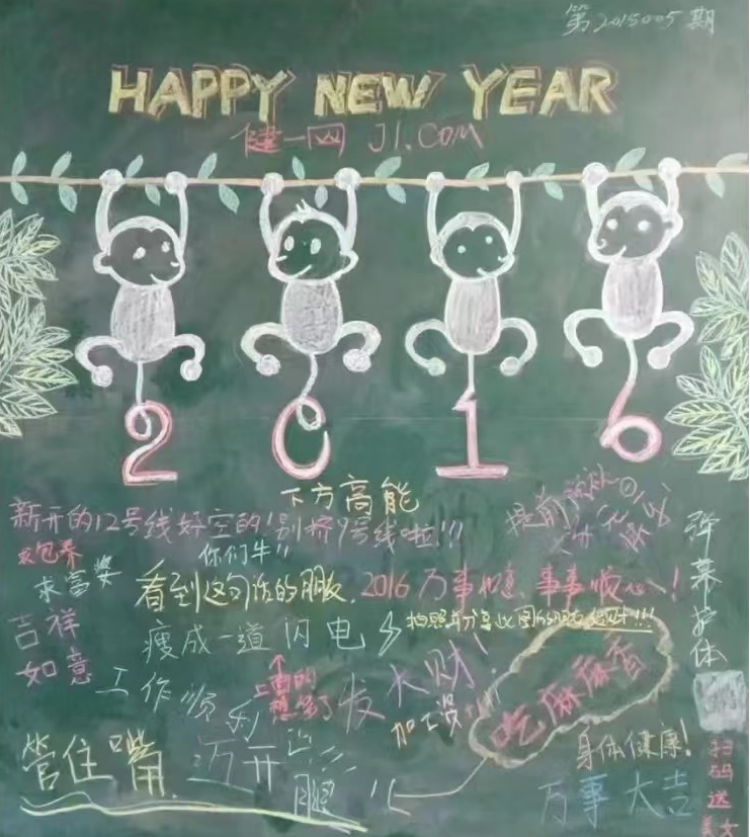 第2015005期
HAPPY NEW YEAR
健一网 J1.COM
2016
下方高能
新开的12号线好空的!别挤9号线啦!!!
你们牛!!
求包养
求富婆
看到这句话的朋友,2016万事如意、事事顺心!
吉祥
如意
瘦成一道闪电
工作顺利
上面的
想多了
发大财!
加工资!!!
吃麻麻香
弹幕护体
身体健康!
管住嘴 迈开
腿
万事大吉
扫码送美女